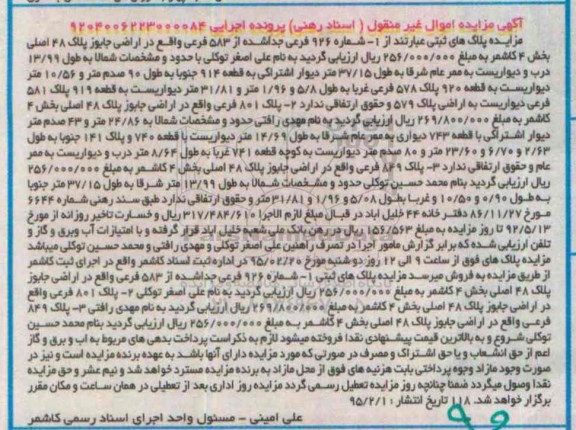 آگهی مزایده اموال غیر منقول ( اسناد رهنی) پرونده اجرایی ۹۲۰۴۰۰۶۲۲۳۰۰۰۰۸۴
مزایده پلاک های ثبتی عبارتند از ۱- شماره ۹۲۶ فرعی جداشده از ۵۸۳ فرعی واقع در اراضی جابوز پلاک ۴۸ اصلی
بخش ۴ کاشمر به مبلغ ۲۵۶/۰۰۰/۰۰۰ ریال ارزیابی گردید به نام علی اصغر توکلی با حدود و مشخصات شمالا به طول ۱۳/۹۹
درب و دیواریست به ممر عام شرقا به طول ۳۷/۱۵ متر دیوار اشتراکی به قطعه ۹۱۴ جنوبا به طول ۹۰ صدم متر و ۱۰/۵۶ متر
دیواریست به قطعه ۹۲۰ پلاک ۵۷۸ فرعی غربا به طول ۵/۸ و ۱/۹۶ متر و ۳۱/۸۱ متر دیواریست به قطعه ۹۱۹ پلاک ۵۸۱
فرعی دیواریست به اراضی پلاک ۵۷۹ و حقوق ارتفاقی ندارد ۲- پلاک ۸۰۱ فرعی واقع در اراضی جابوز پلاک ۴۸ اصلی بخش ۴
کاشمر به مبلغ ۲۶۹/۸۰۰/۰۰۰ ریال ارزیابی گردید به نام مهدی رافتی حدود و مشخصات شمالا به ۲۴/۸۶ متر و ۴۳ صدم متر
دیوار اشتراکی با قطعه ۷۴۳ دیواری به ممر عام شرقا به طول ۱۴/۶۹ متر دیواریست با قطعه ۷۴۰ و پلاک ۱۴۱ جنوبا به طول
۲/۶۳ و ۶/۷۰ و ۲۳/۶۰ متر و ۸۰ صدم متر دیواریست به کوچه قطعه ۷۴۱ غربا به طول ۸/۶۴ متر درب و دیواریست به ممر
عام و حقوق ارتفاقی ندارد ۳- پلاک ۸۴۹ فرعی واقع در اراضی جابوز پلاک ۴۸ اصلی بخش ۴ کاشمر به مبلغ ۲۵۶/۰۰۰/۰۰۰
ریال ارزیابی گردید بنام محمد حسین توکلی حدود و مشخصات شمالا به طول ۱۳/۹۹ متر شرقا به طول ۳۷/۱۵ متر جنوبا
به طول ۰/۹۰ و ۱۰/۵۰ و غربا بطول ۵/۰۸ و ۱/۹۶ و ۳۱/۸۱ متر و حقوق ارتفاقی ندارد طبق سند رهنی شماره ۶۶۴۴
مورخ ۸۶/۱۱/۲۷ دفتر خانه ۴۴ خلیل اباد در قبال مبلغ لازم الاجرا ۳۱۷/۴۸۴/۶۱۰ ریال و خسارت تاخیر روزانه از مورخ
۹۲/۵/۱۳ تا روز مزایده به مبلغ ۱۵۶/۵۶۳ ریال در رهن بانک ملی شعبه خلیل اباد قرار گرفته و با امتیازات آب وبرق و گاز و
تلفن ارزیابی شده که برابر گزارش مامور اجرا در تصرف راهنین علی اصغر توکلی و مهدی رافتی و محمد حسین توکلی میباشد
مزایده پلاک های فوق از ساعت ۹ الی ۱۲ روز دوشنبه مورخ ۹۵/۰۲/۲۰ در اداره ثبت اسناد کاشمر واقع در اجرای ثبت کاشمر
از طریق مزایده به فروش میرسد مزایده پلاک های ثبتی ۱- شماره ۹۲۶ فرعی جداشده از ۵۸۳ فرعی واقع در اراضی جابوز
پلاک ۴۸ اصلی بخش ۴ کاشمر به مبلغ ۲۵۶/۰۰۰/۰۰۰ ریال ارزیابی گردید به نام علی اصغر توکلی ۲- پلاک ۸۰۱ فرعی واقع
در اراضی جابوز پلاک ۴۸ اصلی بخش ۴ کاشمر به مبلغ ۲۶۹/۸۰۰/۰۰۰ ریال ارزیابی گردید به نام مهدی رافتی ۳- پلاک ۸۴۹
فرعی واقع در اراضی جابوز پلاک ۴۸ اصلی بخش ۴ کاشمر به مبلغ ۲۵۶/۰۰۰/۰۰۰ ریال ارزیابی گردید بنام محمد حسین
توکلی شروع و به بالاترین قیمت پیشنهادی نقدا فروخته میشود لازم به ذکر است پرداخت بدهی های مربوط به اب و برق و گاز
اعم از حق انشعاب و یا حق اشتراک و مصرف در صورتی که مورد مزایده دارای آنها باشد به عهده برنده مزایده است و نیز در
صورت وجود مازاد وجوه پرداختی بابت هزینه های فوق از محل مازاد به برنده مزایده مسترد خواهد شد و نیم عشر و حق مزایده
نقدا وصول میگردد ضمنا چنانچه روز مزایده تعطیل رسمی گردد مزایده روز اداری بعد از تعطیلی در همان ساعت و مکان مقرر
برگزار خواهد شد. ۱۱۸ تاریخ انتشار : ۹۵/۲/۱
علی امینی - مسئول واحد اجرای اسناد رسمی کاشمر